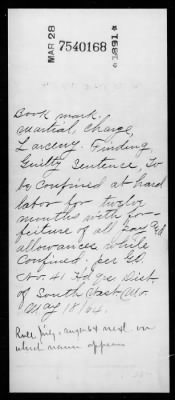 MAR 28
7540168
1891
Book mark.
Martial, Charge,
Larceny. Finding
Guilty Sentence, To
be Confined at hard
labor for twelve
months with for-
feiture of all pay &
allowances while
Confined. per G.O.
No. 41 Hdqrs Dist.
of South East Mo.
May 18/64.
Roll, July & Augt 64 next on
which name appears